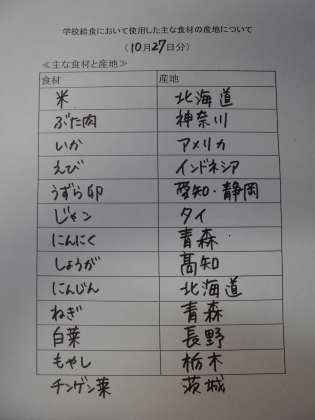 学校給食において使用した主な食材の産地について
(10月27日分)
≪主な食材と産地≫
食材 産地
米 北海道
ぶた肉 神奈川
いか アメリカ
えび インドネシア
うずら卵 愛知・静岡
じゃこ タイ
にんにく 青森
しょうが 高知
にんじん 北海道
ねぎ 青森
白菜 長野
もやし 栃木
チンゲン菜 茨城